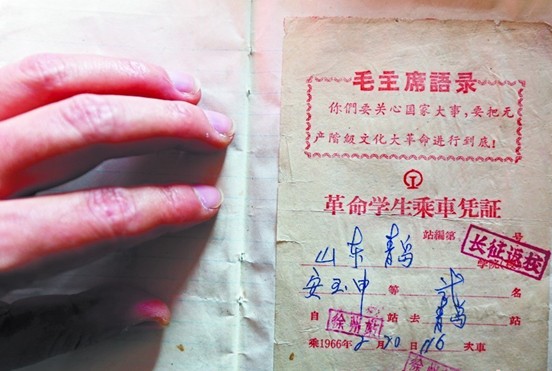 毛主席語录
你們要关心国家大事，要把无
产階級文化大革命進行到底！
革命学生乘車凭証
站編第 号
长征返校
山东 青岛
安玉申 等 贰 名
自 徐州 站去 青岛 站
乘1966年 月20日 次車